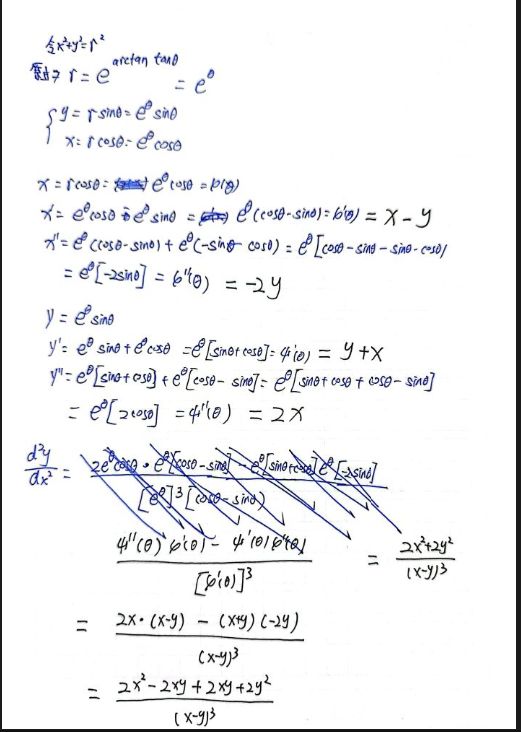 令x²+y²=r²
r = e^{arctan tanθ} = e^θ
{ y = r sinθ = e^θ sinθ
x = r cosθ = e^θ cosθ
x = r cosθ = e^θ cosθ = φ(θ)
x' = e^θ cosθ - e^θ sinθ = e^θ (cosθ - sinθ) = φ'(θ) = x - y
x'' = e^θ (cosθ - sinθ) + e^θ (-sinθ - cosθ) = e^θ [cosθ - sinθ - sinθ - cosθ]
= e^θ [-2sinθ] = φ''(θ) = -2y
y = e^θ sinθ
y' = e^θ sinθ + e^θ cosθ = e^θ [sinθ + cosθ] = ψ'(θ) = y + x
y'' = e^θ [sinθ + cosθ] + e^θ [cosθ - sinθ] = e^θ [sinθ + cosθ + cosθ - sinθ]
= e^θ [2cosθ] = ψ''(θ) = 2x
d²y/dx² = 2e^θ cosθ · e^θ [cosθ - sinθ] - e^θ [sinθ + cosθ] e^θ [-2sinθ] / [e^θ]³ [cosθ - sinθ)
ψ''(θ) φ'(θ) - ψ'(θ) φ''(θ) / [φ'(θ)]³ = 2x²+2y² / (x-y)³
= 2x · (x-y) - (x+y) (-2y) / (x-y)³
= 2x² - 2xy + 2xy + 2y² / (x-y)³